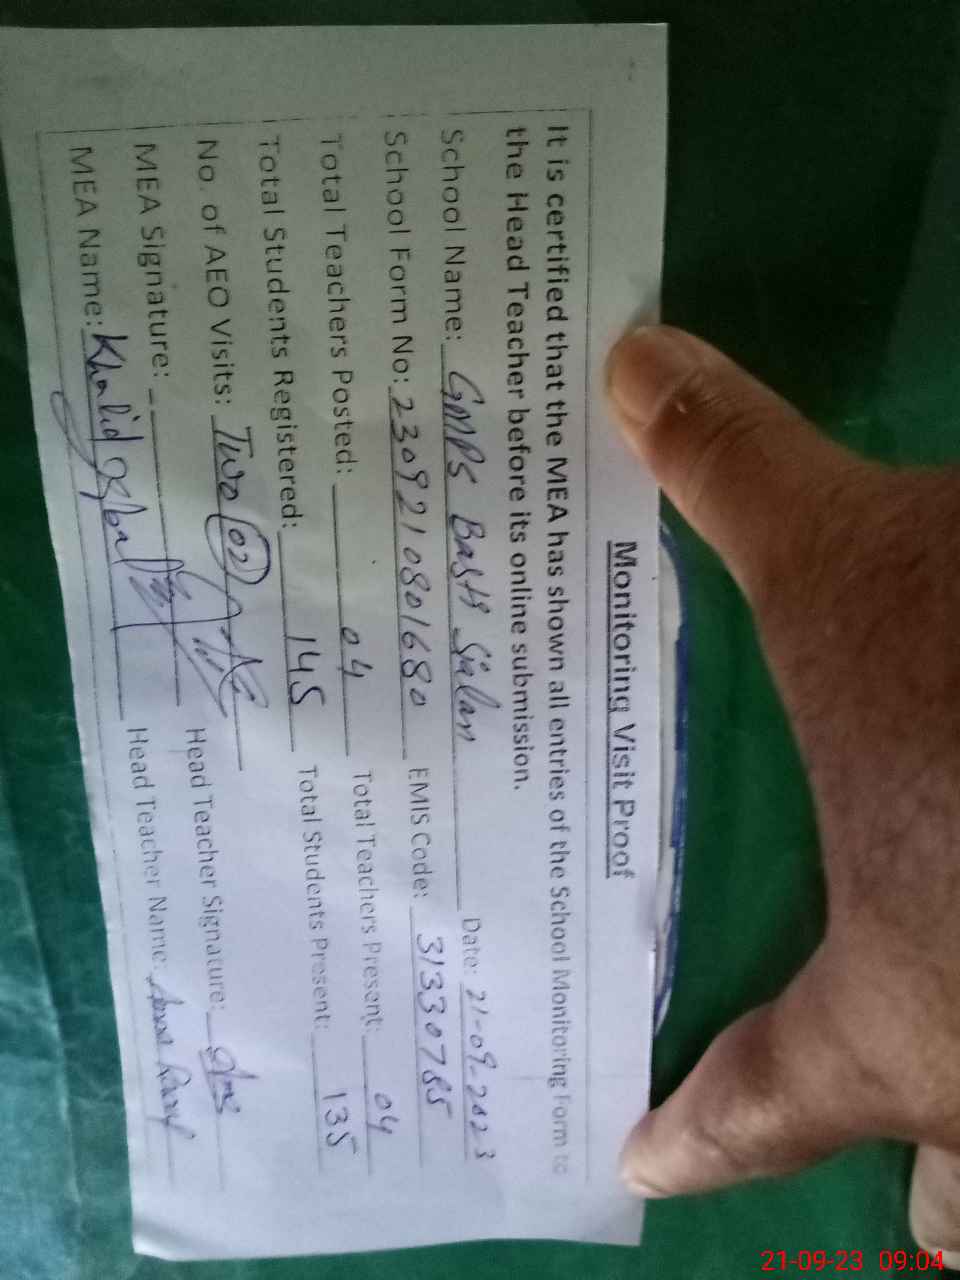 Monitoring Visit Proof
It is certified that the MEA has shown all entries of the School Monitoring Form to
the Head Teacher before its online submission.
School Name: GMPS Basti Sialan Date: 21-09-2023
School Form No: 2309210801680 EMIS Code: 31330785
Total Teachers Posted: 04 Total Teachers Present: 04
Total Students Registered: 145 Total Students Present: 135
No. of AEO Visits: Two (02)
MEA Signature: Head Teacher Signature:
MEA Name: Khalid Iqbal Head Teacher Name:
21-09-23 09:04